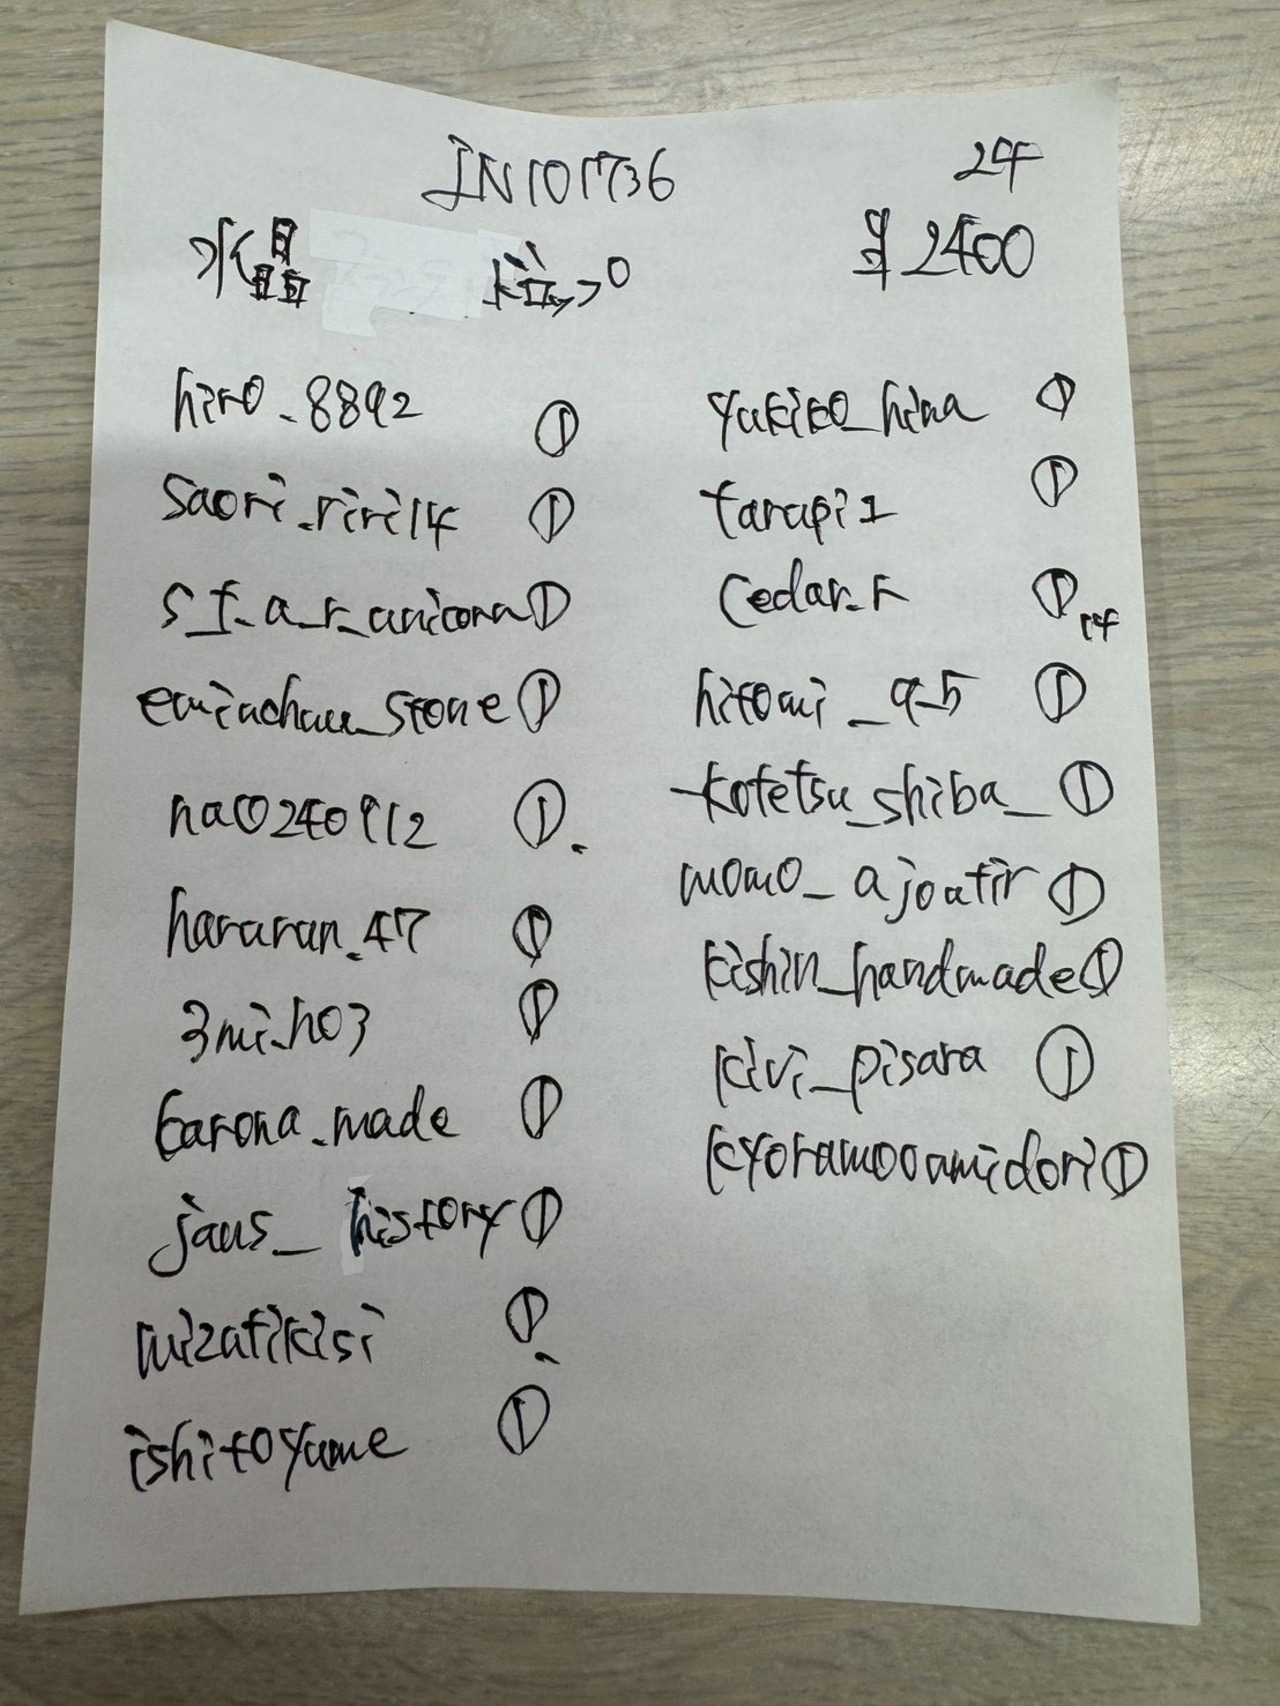 JN101736
24
水晶
¥2400
hiro_8892 ①
saori_riri14 ①
s_f_a_r_unicorn ①
eminchan_stone ①
nao240912 ①
hararan_47 ①
3mi_ho3 ①
karona_made ①
jaus_history ①
mizatikisi ①
ishitoyume ①
yukiko_hina ①
tarapi1 ①
cedar_r ①
14
hitomi_9_5 ①
kotetsu_shiba_ ①
momo_ajoatir ①
kishin_handmade ①
kivi_pisara ①
kyoramooamidori ①